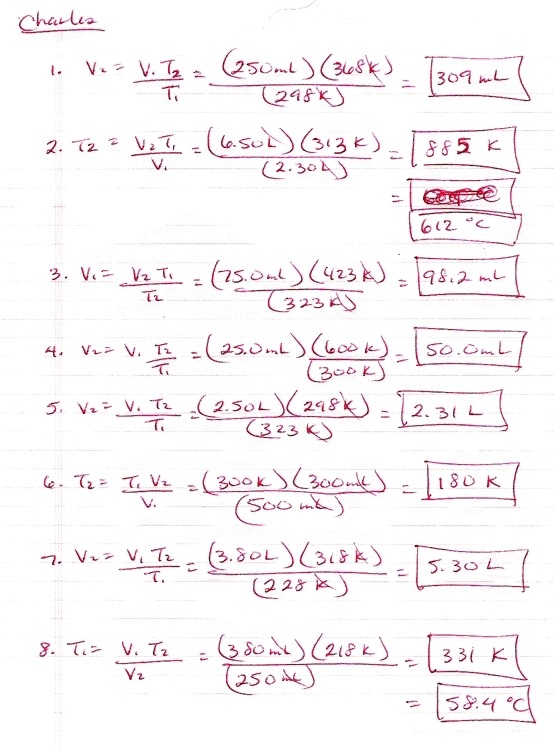 Charles
1. V₂ = V₁ T₂ / T₁ = (250 mL)(368 K) / (298 K) = 309 mL
2. T₂ = V₂ T₁ / V₁ = (6.50 L)(313 K) / (2.30 L) = 885 K
= 612 °C
3. V₁ = V₂ T₁ / T₂ = (75.0 mL)(423 K) / (323 K) = 98.2 mL
4. V₂ = V₁ T₂ / T₁ = (25.0 mL)(600 K) / (300 K) = 50.0 mL
5. V₂ = V₁ T₂ / T₁ = (2.50 L)(298 K) / (323 K) = 2.31 L
6. T₂ = T₁ V₂ / V₁ = (300 K)(300 mL) / (500 mL) = 180 K
7. V₂ = V₁ T₂ / T₁ = (3.80 L)(318 K) / (228 K) = 5.30 L
8. T₁ = V₁ T₂ / V₂ = (380 mL)(218 K) / (250 mL) = 331 K
= 58.4 °C